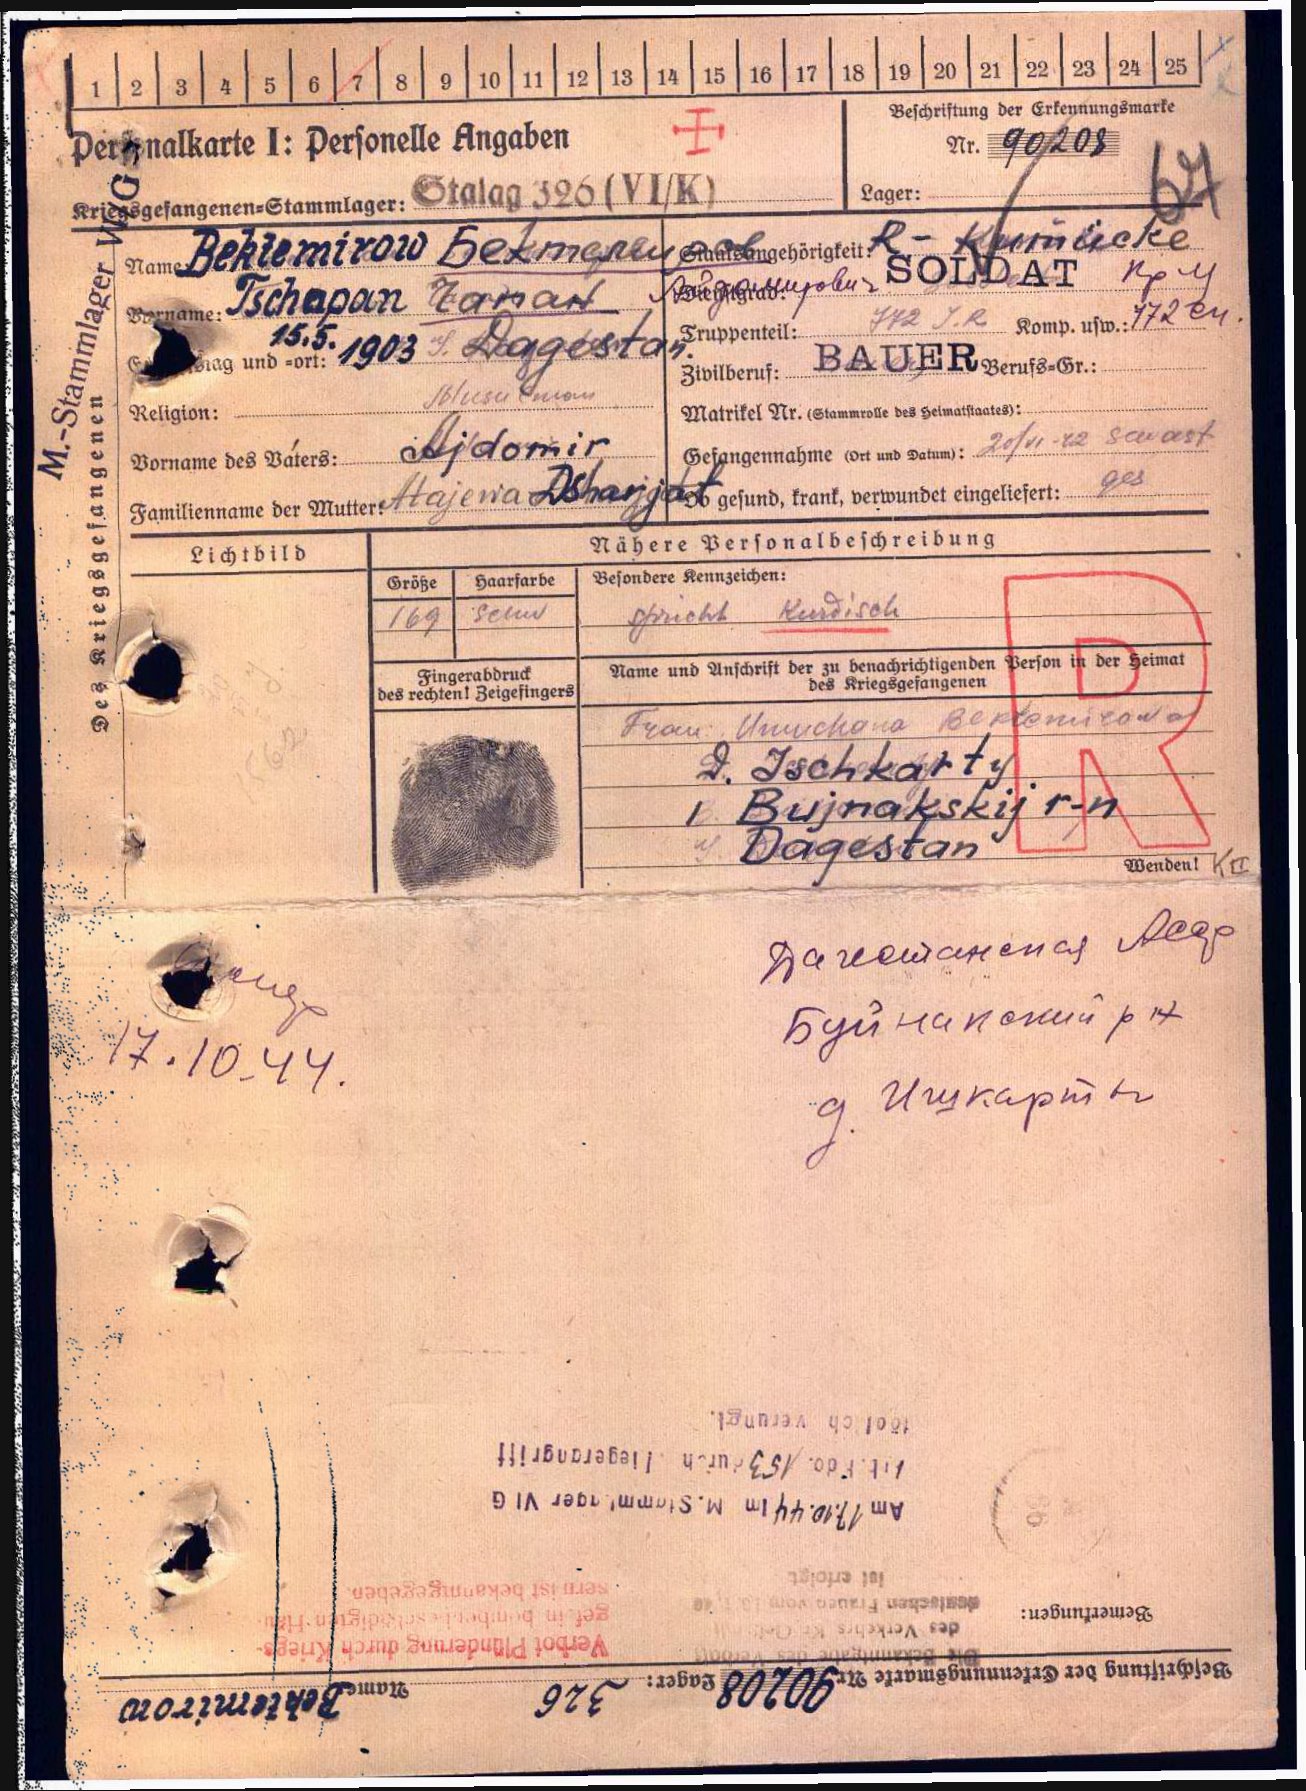 1 2 3 4 5 6 7 8 9 10 11 12 13 14 15 16 17 18 19 20 21 22 23 24 25
Personalkarte I: Personelle Angaben
Beschriftung der Erkennungsmarke
Nr. 90208
Kriegsgefangenen-Stammlager: Stalag 326 (VI/K)
Lager:
M.-Stammlager VI G
Des Kriegsgefangenen
Name: Bektemirow Бектемиров
Vorname: Tschapan Чапан Айдамирович
15.5.
und =ort: 1903 Dagestan
Religion: Muselman
Vorname des Vaters: Ajdomir
Familienname der Mutter: Atajewa Dsharijat
Staatsangehörigkeit: R - Kumücke
Dienstgrad: SOLDAT
Truppenteil: 772 J.R. Komp. usw.: 772 сп.
Zivilberuf: BAUER Berufs=Gr.:
Matrikel Nr. (Stammrolle des Heimatstaates):
Gefangennahme (Ort und Datum): 20/VI-42 Sewast
Ob gesund, krank, verwundet eingeliefert: ges
Lichtbild
Nähere Personalbeschreibung
Größe
Haarfarbe
Besondere Kennzeichen:
169
schw
spricht Kurdisch
Fingerabdruck
des rechten! Zeigefingers
Name und Anschrift der zu benachrichtigenden Person in der Heimat
des Kriegsgefangenen
R
Frau: Umuchana Bektemirowa
D. Ischkarty
Bujnakskij r-n
Dagestan
Wenden!
Дагестанская Асср
Буйнакский р н
д. Ишкарты
17.10.44.
Beschriftung der Erkennungsmarke Nr. 90208 Lager: 326 Name Bektemirow
Bemerkungen:
Die Bekanntgabe des Verbots
des Verkehrs
deutschen Frauen vom
ist erfolgt
Verbot Plünderung durch Kriegs-
gef. in bombenbeschädigten Häu-
sern ist bekanntgegeben
Am 17.10.44 im M. Stammlager VI G
Arb. Kdo. 153 durch Fliegerangriff
tödlich verungl.